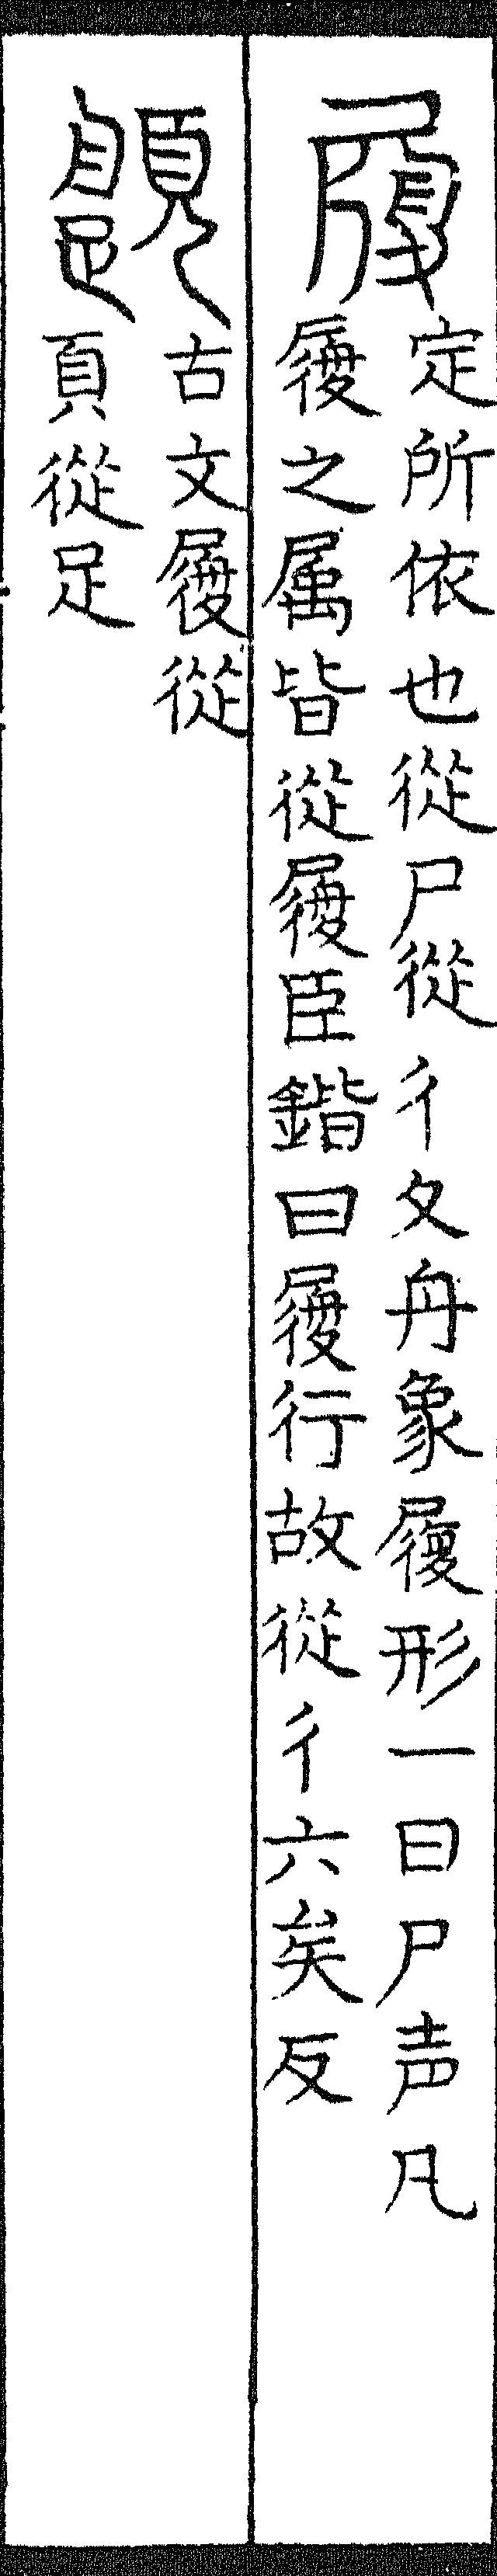 履
定所依也從尸從彳夂舟象履形一曰尸声凡
履之属皆從履臣鍇曰履行故從彳六矣反
𩕎
古文履從
頁從足